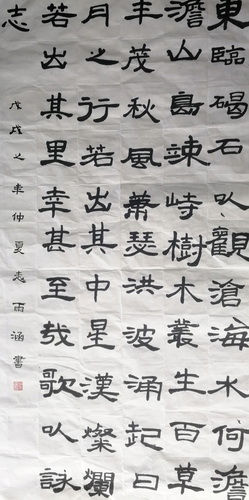 東臨碣石以觀滄海水何澹
澹山島竦峙樹木叢生百草
丰茂秋風蕭瑟洪波涌起日
月之行若出其中星漢燦爛
若出其里幸甚至哉歌以詠
志
戊戌之年仲夏袁雨涵書